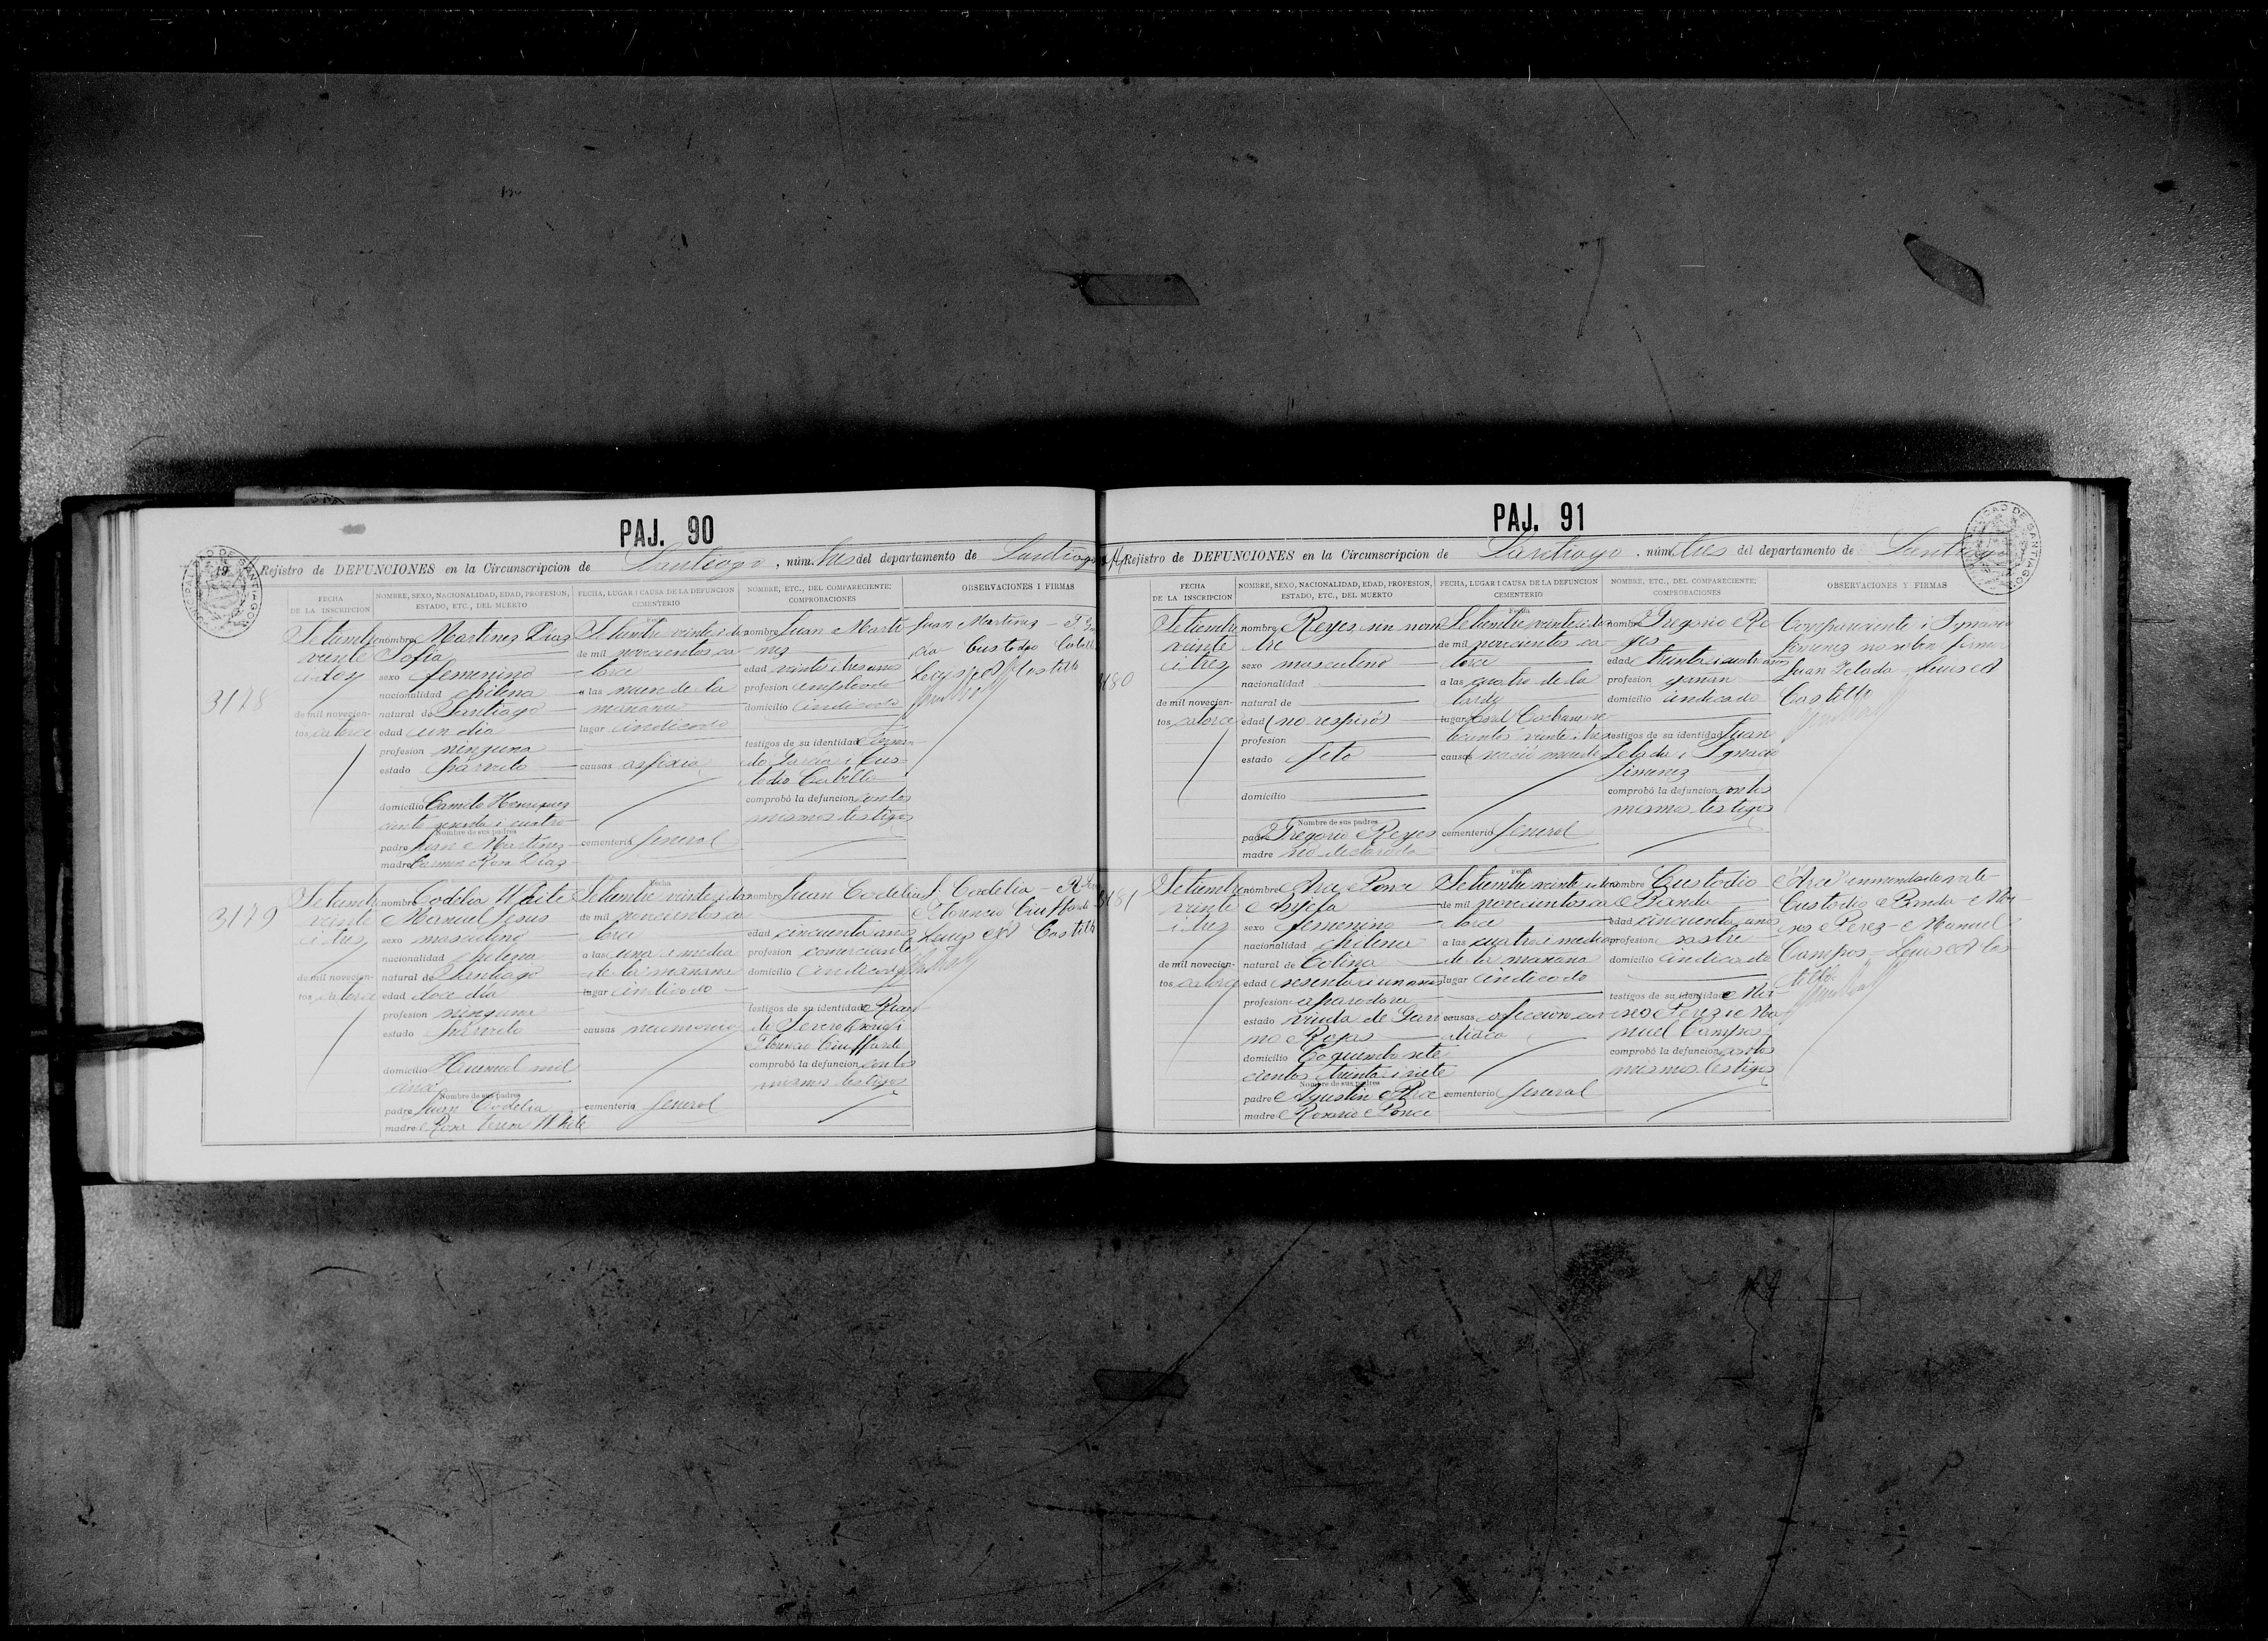 PAJ. 90
Rejistro de DEFUNCIONES en la Circunscripcion de Santiago, núm. tres del departamento de Santiago
FECHA DE LA INSCRIPCION
NOMBRE, SEXO, NACIONALIDAD, EDAD, PROFESION, ESTADO, ETC., DEL MUERTO
FECHA, LUGAR I CAUSA DE LA DEFUNCION CEMENTERIO
NOMBRE, ETC., DEL COMPARECIENTE: COMPROBACIONES
OBSERVACIONES I FIRMAS
3178
Setiembre
veinte
i dos
de mil novecien-
tos catorce
nombre Martinez Diaz
Sofia
sexo femenino
nacionalidad chilena
natural de Santiago
edad un dia
profesion ninguna
estado párvulo
domicilio Camilo Henriquez
ciento sesenta i cuatro
Nombre de sus padres
padre Juan Martinez
madre Carmen Rosa Diaz
Fecha
Setiembre veinte i dos
de mil novecientos ca
torce
a las nueve de la
mañana
lugar indicado
causas asfixia
cementerio Jeneral
nombre Juan Marti
nez
edad veinte i tres años
profesion empleado
domicilio indicado
testigos de su identidad
do Garcia i Cus
todio Cubillo
comprobó la defuncion con los
mismos testigos
Juan Martinez
Custodio
Luis A Castillo
3179
Setiembre
veinte
i tres
de mil novecien-
tos catorce
nombre Codelia White
Manuel Jesus
sexo masculino
nacionalidad chilena
natural de Santiago
edad doce dia
profesion ninguna
estado párvulo
domicilio Huemul mil
cinco
Nombre de sus padres
padre Juan Codelia
madre Rosa Teresa White
Fecha
Setiembre veinte i dos
de mil novecientos ca
torce
a las una i media
de la mañana
lugar indicado
causas neumonia
cementerio Jeneral
nombre Juan Codelia
edad cincuenta años
profesion comerciante
domicilio indicado
testigos de su identidad Ricar
do
Florencio Ciuffardi
comprobó la defuncion con los
mismos testigos
J. Codelia
Florencio Ciuffardi
Luis A Castillo
PAJ. 91
Rejistro de DEFUNCIONES en la Circunscripcion de Santiago, núm. tres del departamento de Santiago
FECHA DE LA INSCRIPCION
NOMBRE, SEXO, NACIONALIDAD, EDAD, PROFESION, ESTADO, ETC., DEL MUERTO
FECHA, LUGAR I CAUSA DE LA DEFUNCION CEMENTERIO
NOMBRE, ETC., DEL COMPARECIENTE: COMPROBACIONES
OBSERVACIONES Y FIRMAS
Setiembre
veinte
i tres
de mil novecien-
tos catorce
nombre Reyes, sin nom
bre
sexo masculino
nacionalidad
natural de
edad (no respiró)
profesion
estado feto
domicilio
Nombre de sus padres
padre Gregorio Reyes
madre no declarada
Fecha
Setiembre veinte i dos
de mil novecientos ca
torce
a las cuatro de la
tarde
lugar Lord Cochrane se
tecientos veinte i tres
causas nació muerto
cementerio Jeneral
nombre Gregorio Re
yes
edad treinta i cuatro años
profesion gañan
domicilio indicado
testigos de su identidad Juan
Zelada i Ignacio
Jimenez
comprobó la defuncion con los
mismos testigos
Compareciente i Ignacio
Jimenez no saben firmar
Juan Zelada Luis A
Castillo
Setiembre
veinte
i tres
de mil novecien-
tos catorce
nombre Arce Ponce
Anjela
sexo femenino
nacionalidad chilena
natural de Colina
edad sesenta i un años
profesion aparadora
estado viuda de
no Rojas
domicilio Coquimbo sete
cientos treinta i siete
Nombre de sus padres
padre Agustin Arce
madre Rosario Ponce
Fecha
Setiembre veinte i dos
de mil novecientos ca
torce
a las cuatro i media
de la mañana
lugar indicado
causas afeccion car
diaca
cementerio Jeneral
nombre Custodio
Banda
edad cincuenta años
profesion sastre
domicilio indicado
testigos de su identidad Moi
ses Perez i Ma
nuel Campos
comprobó la defuncion con los
mismos testigos
"Arce" enmendado vale
Custodio Banda Moi
ses Perez - Manuel
Campos - Luis A Cas
tillo